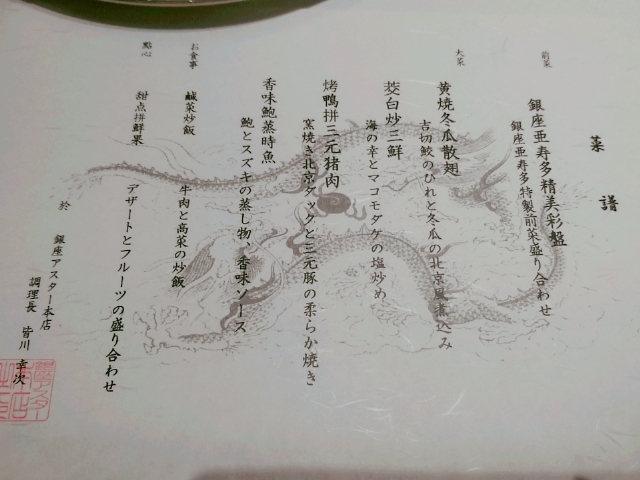 菜譜
前菜
銀座亜寿多精美彩盤
銀座亜寿多特製前菜盛り合わせ
大菜
黄焼冬瓜散翅
吉切鮫のひれと冬瓜の北京風煮込み
茭白炒三鮮
海の幸とマコモダケの塩炒め
烤鴨拼三元猪肉
窯焼き北京ダックと三元豚の柔らか焼き
香味鮑蒸時魚
鮑とスズキの蒸し物、香味ソース
お食事
鹹菜炒飯
牛肉と高菜の炒飯
點心
甜点拼鮮果
デザートとフルーツの盛り合わせ
於 銀座アスター本店
調理長 皆川幸次